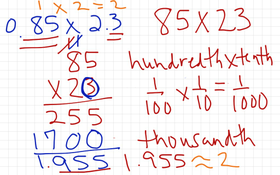 1 x 2 = 2
0.85 x 2.3
85
x 23
255
1700
1.955
85 x 23
hundredth x tenth
1/100 x 1/10 = 1/1000
thousandth
1.955 ≈ 2